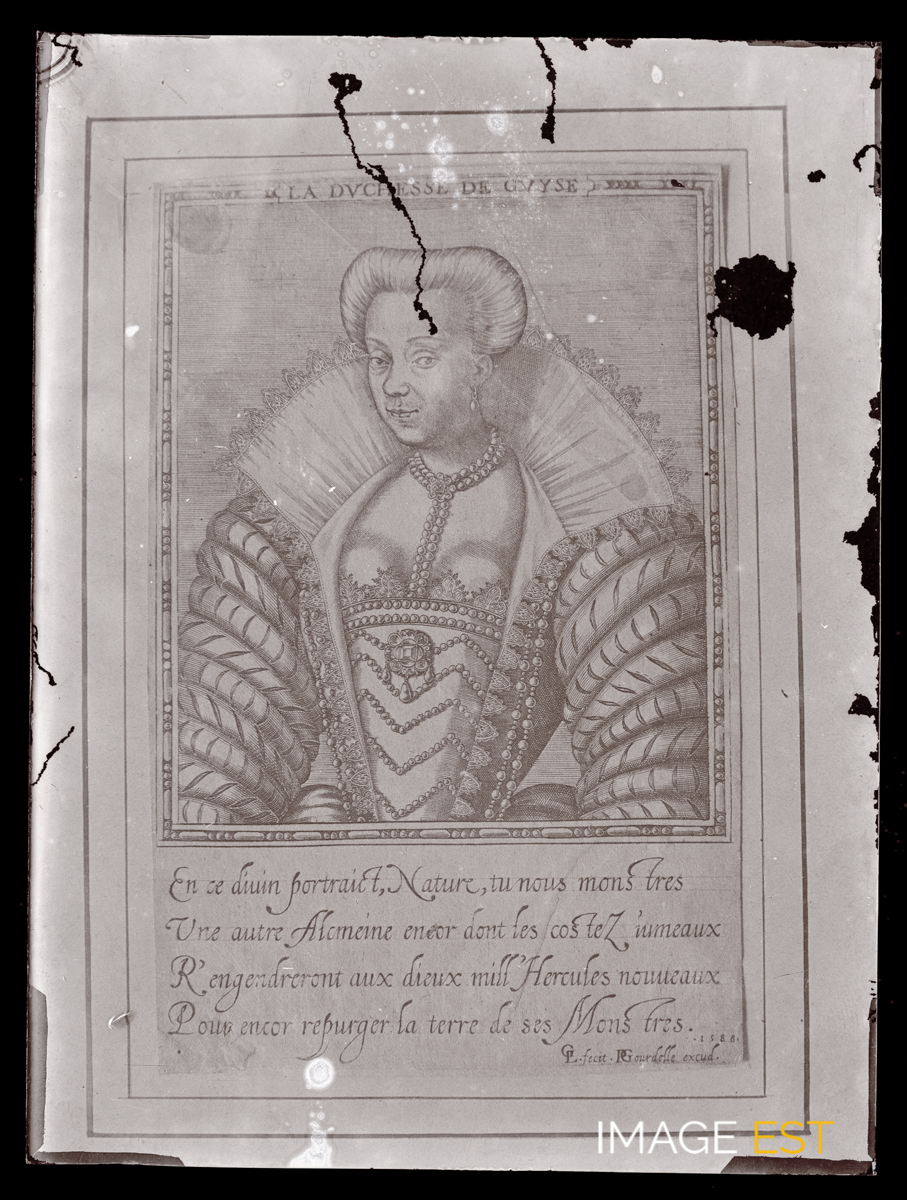 LA DVCHESSE DE GVYSE
En ce diuin portraict, Nature, tu nous monstres
Vne autre Alcmeine encor dont les costeZ iumeaux
R'engendreront aux dieux mill'Hercules nouueaux
Pour encor repurger la terre de ses Monstres.
.1588.
GL.fecit. PGourdelle excud.
IMAGE EST